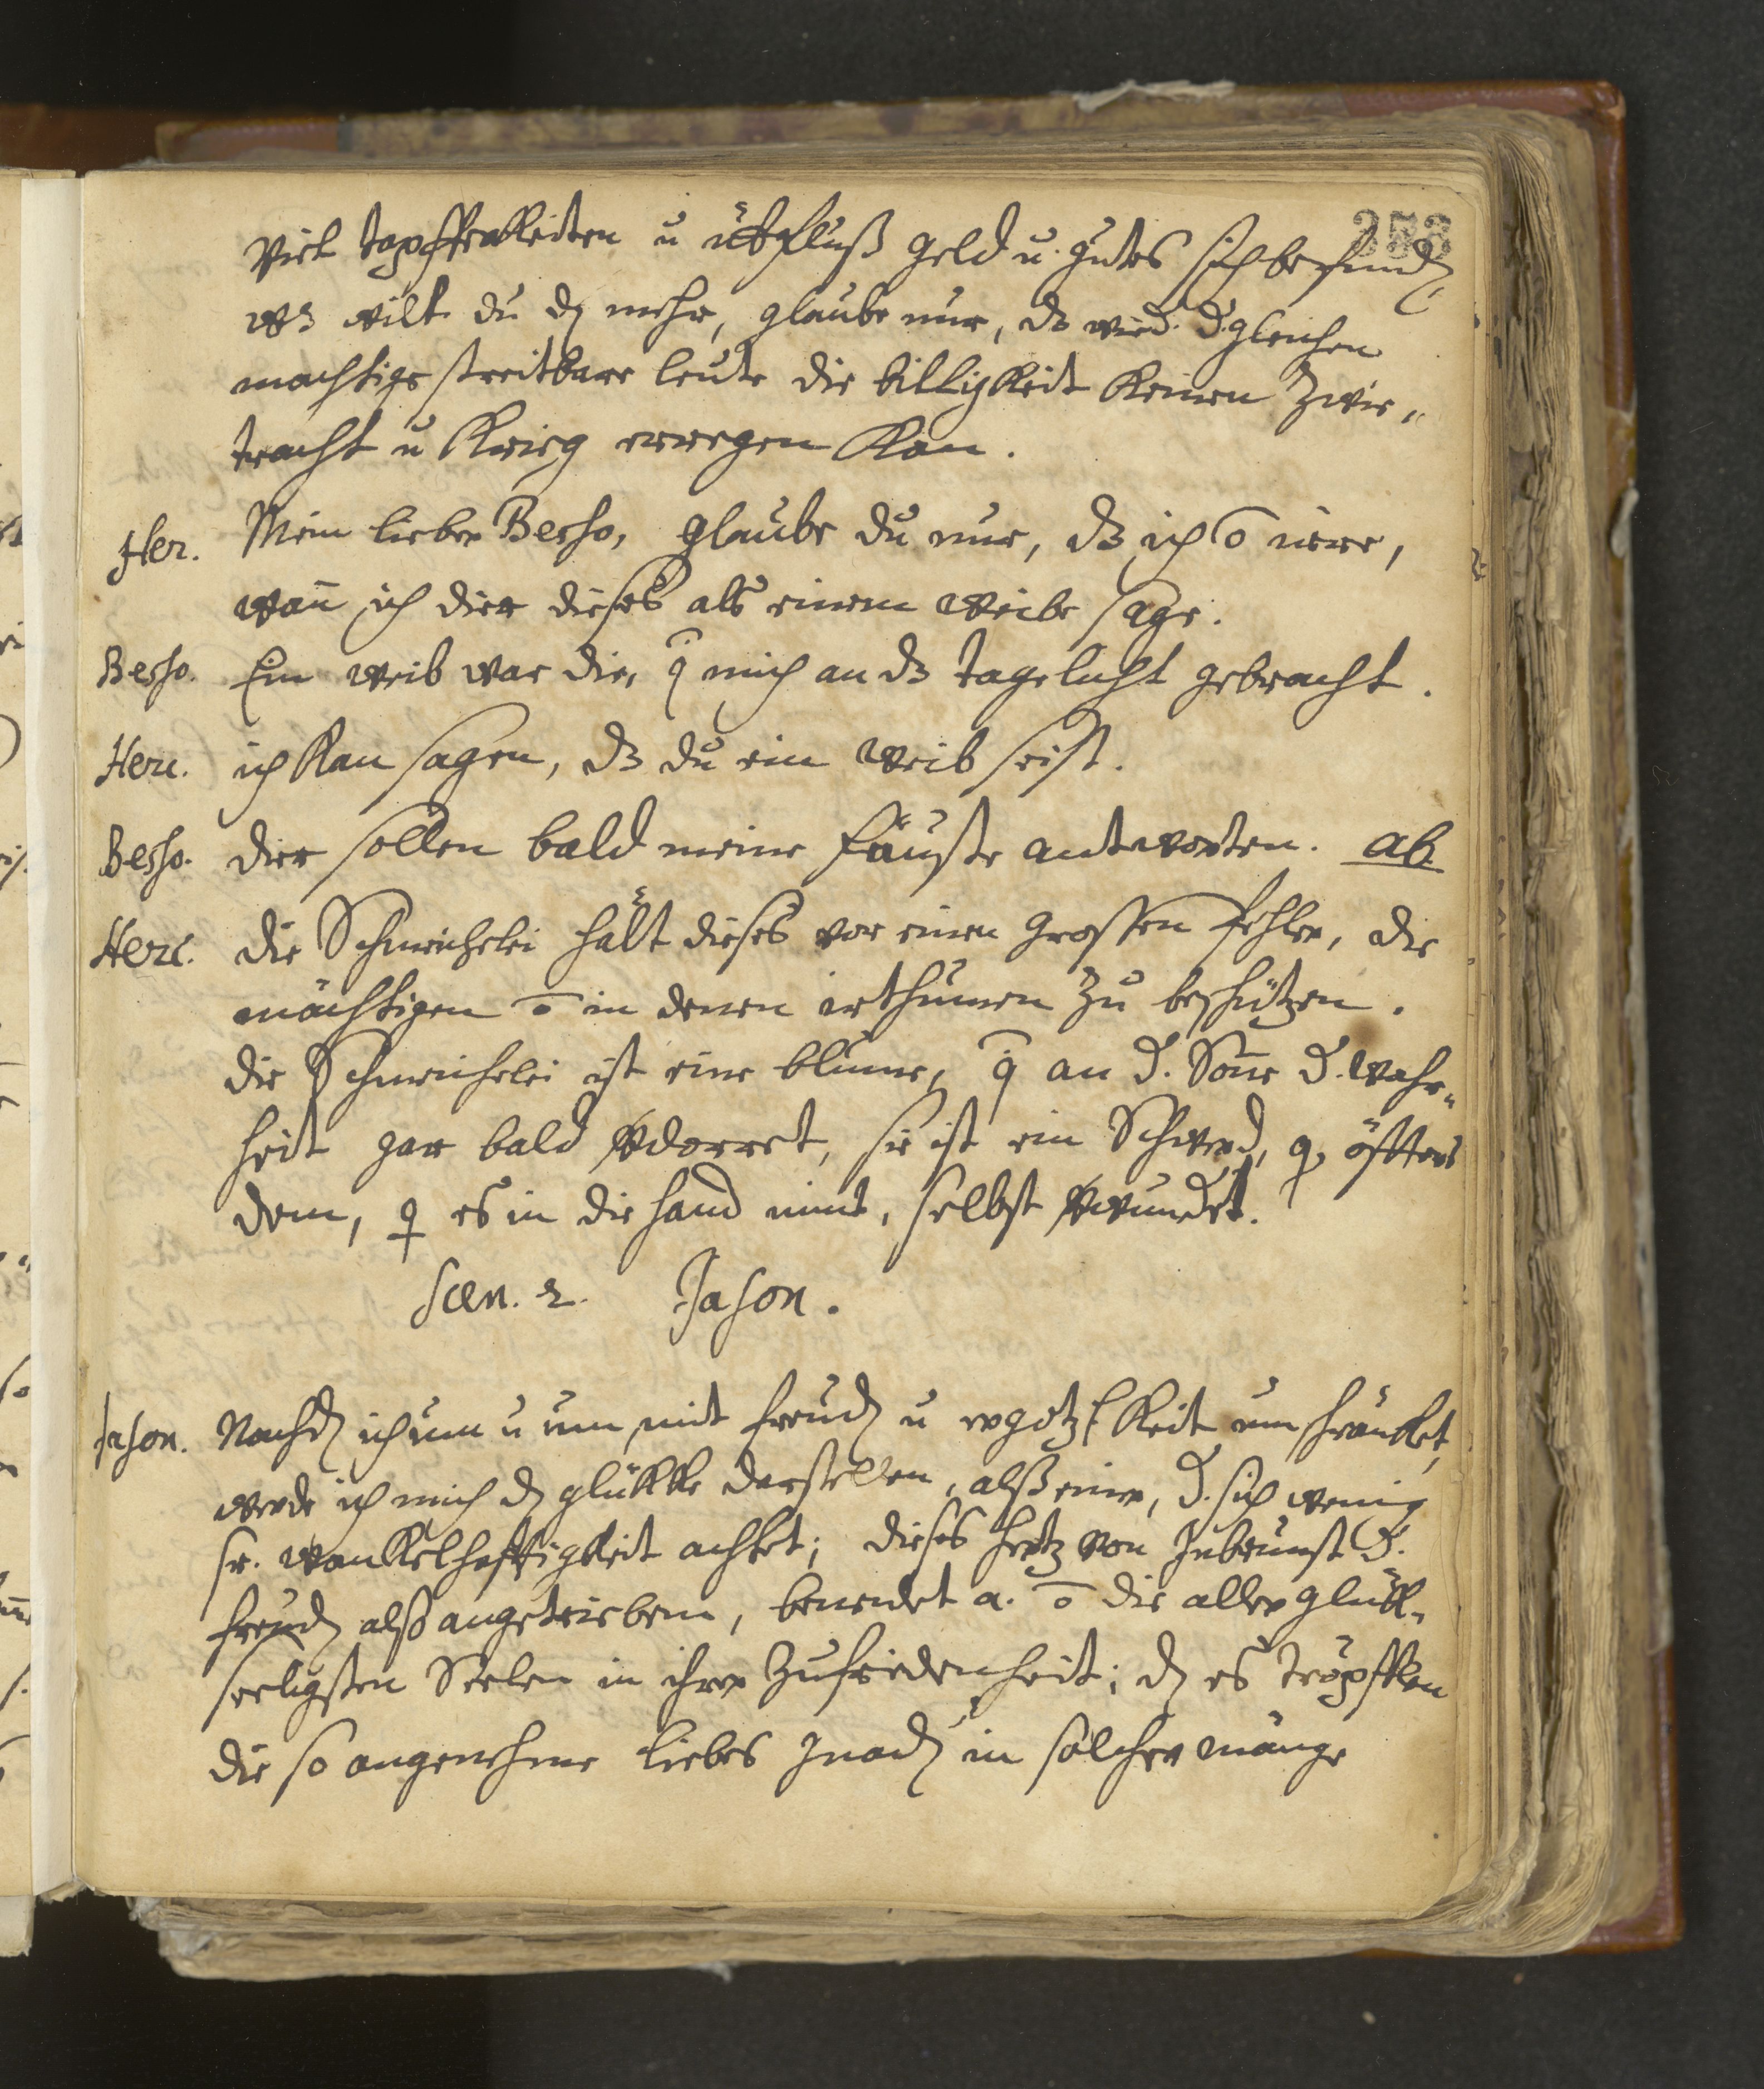 353
Viel tapfferkeiten u übfluß geld u. gutes sich befind
wz wilt du dz mehr, glaube nur, dz wird. d.gleichen
mächtige streitbare leute die billigkeit keinen zwie„
tracht u krieg erregen kan.
Her. Mein lieber Besso, glaube du nur, dz ich ō irre,
wan̄ ich dier dieses als einem weibe sage.
Besso. Ein weib war die, q mich an dz tageliecht gebracht.
Herc. ich kan sagen, dz du ein weib seist.
Besso. dier sollen bald meine fäuste antworten. ab.
Herc. die Schmeichelei hält dieses vor einen grossen fehler, die
mächtigen ō in denen irthumen zu beschützen.
die Schmeichelei ist eine blume, q an d. Son̄e d. wahr„
heit gar bald vdorret, sie ist ein Schwerd, q, öffters
dem, q es in die hand nimt, selbst vwundet.
Scen. 2. Jason.
Jason. Nachd ich um u um mit freud u ergötzlkeit umschränket,
werde ich mich d glükke darstellen, alß einer, d. sich wenig
sr. wankelhafftigkeit achtet; dieses hertz von Inbrunst d.
freud alß angetrieben, beneidet a. ō die aller glük„
seeligsten Seelen in ihrer zufriedenheit; d es tröpfflen
die so angenehme liebes gnad in solcher mänge